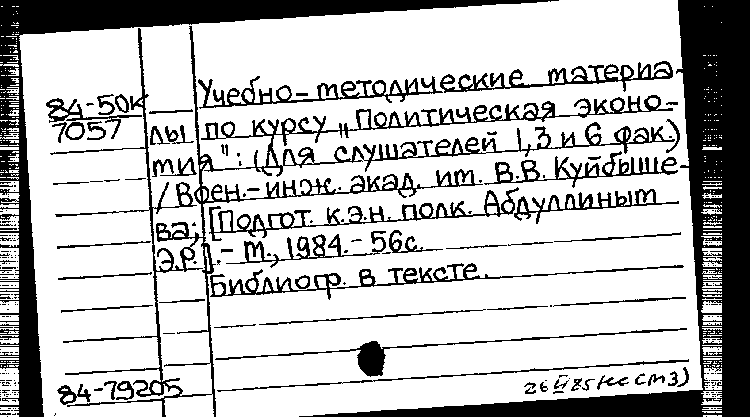 Учебно-методические материа-
84-50К
7057
лы по курсу „Политическая эконо-
мия": (Для слушателей 1,3 и 6 фак.)
/ Воен.-инж. акад. им. В.В. Куйбыше-
ва; [Подгот. к.э.н. полк. Абдуллиным
Э.Р.]. - М., 1984. - 56с.
Библиогр. в тексте.
84-79205